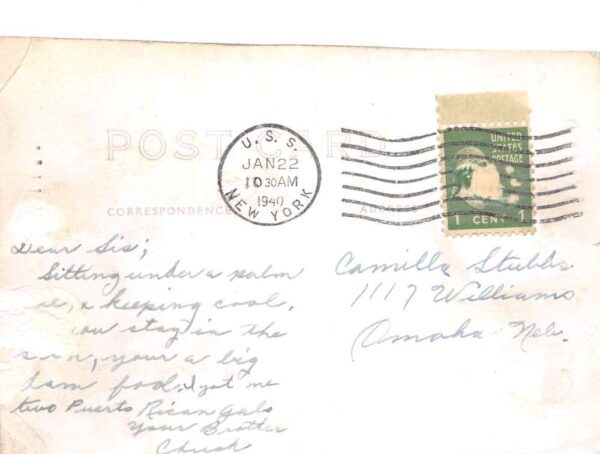 POST CARD
U. S. S.
JAN 22
10 30 AM
1940
NEW YORK
UNITED
STATES
POSTAGE
1 CENT 1
CORRESPONDENCE
ADDRESS
Dear Sis;
Sitting under a palm
& keeping cool.
you stay in the
sun, your a big
dam fool. I got me
two Puerto Rican gals
Your Brother
Chuck
Camilla Stubbs
1117 Williams
Omaha Neb.